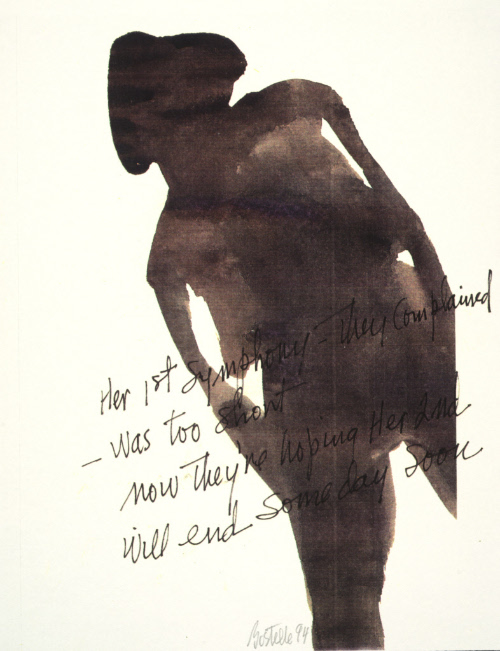 Her 1st Symphony - They Complained
- was too short
now They're hoping Her 2nd
will end some day soon
Bostelle 94